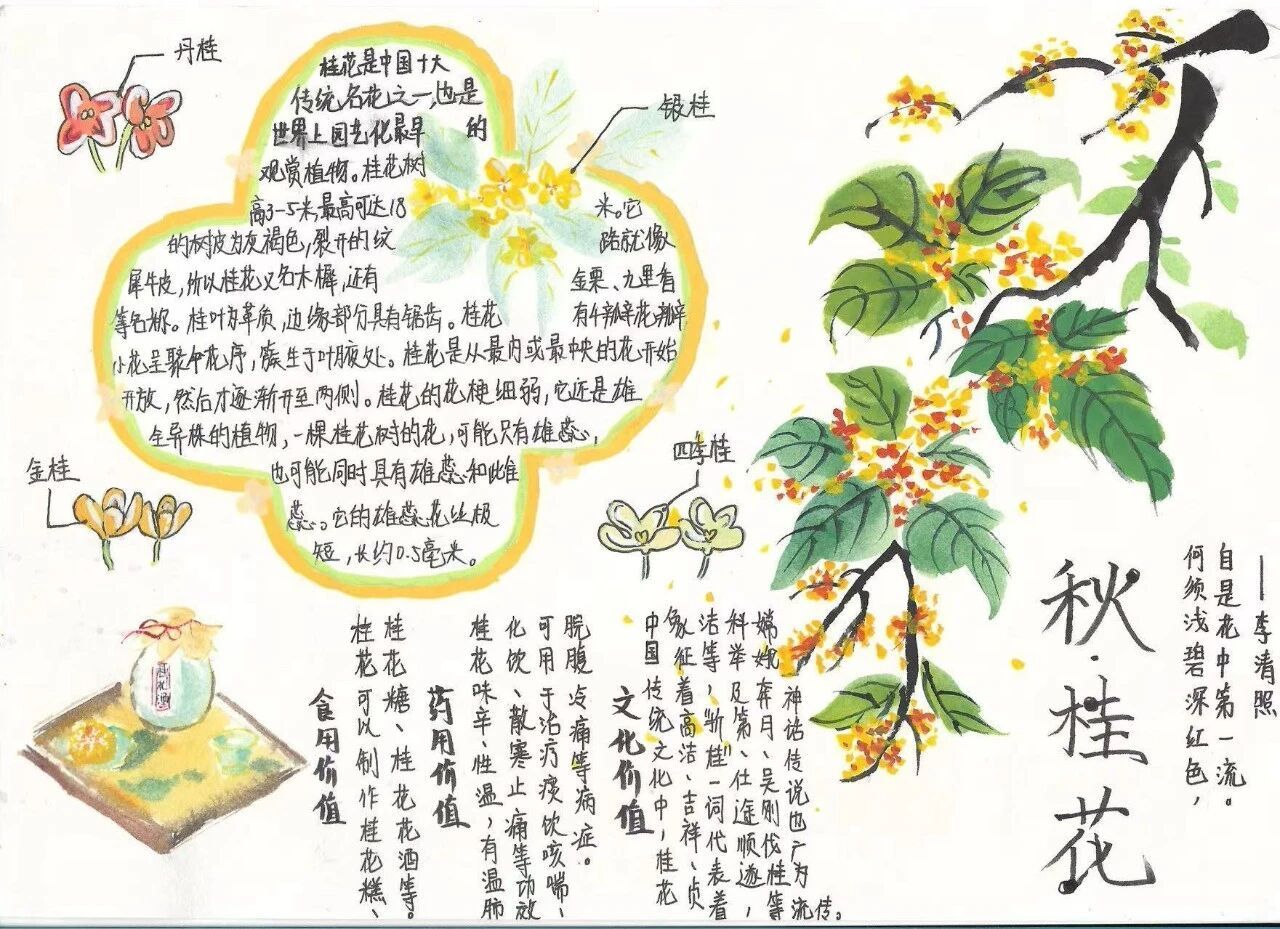 丹桂
银桂
金桂
四季桂
桂花是中国十大
传统名花之一,也是
世界上园艺化最早 的
观赏植物。桂花树
高3-5米,最高可达18 米。它
的树皮为灰褐色,裂开的纹 路就像
犀牛皮,所以桂花又名木樨,还有 金栗、九里香
等名称。桂叶为革质,边缘部分具有锯齿。桂花 有4瓣花瓣
小花呈聚伞花序,簇生于叶腋处。桂花是从最内或最中央的花开始
开放,然后才逐渐开至两侧。桂花的花梗细弱,它还是雄
全异株的植物,一棵桂花树的花,可能只有雄蕊,
也可能同时具有雄蕊和雌
蕊。它的雄蕊花丝极
短,长约0.5毫米。
桂花酒
食用价值
桂花可以制作桂花糕、
桂花糖、桂花花酒等。
药用价值
桂花味辛、性温,有温肺
化饮、散寒止痛等功效
可用于治疗痰饮咳喘、
脘腹冷痛等病症。
文化价值
中国传统文化中,桂花
象征着高洁、吉祥、贞
洁等,“折桂”一词代表着
科举及第、仕途顺遂,
嫦娥奔月、吴刚伐桂等
神话传说也广为流传。
秋·桂花
何须浅碧深红色,
自是花中第一流。
——李清照